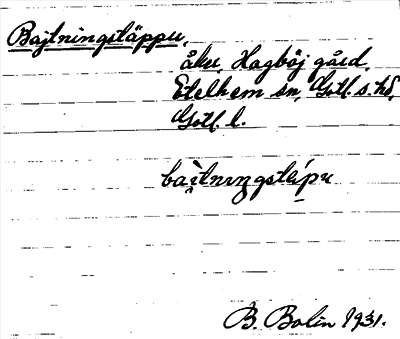 Bajtningstäppu,
åku, Hagböj gård,
Etelhem sn, Gotl. s. hd,
Gotl. l.
baı̀tnıŋgstápu
B. Bolin 1931.